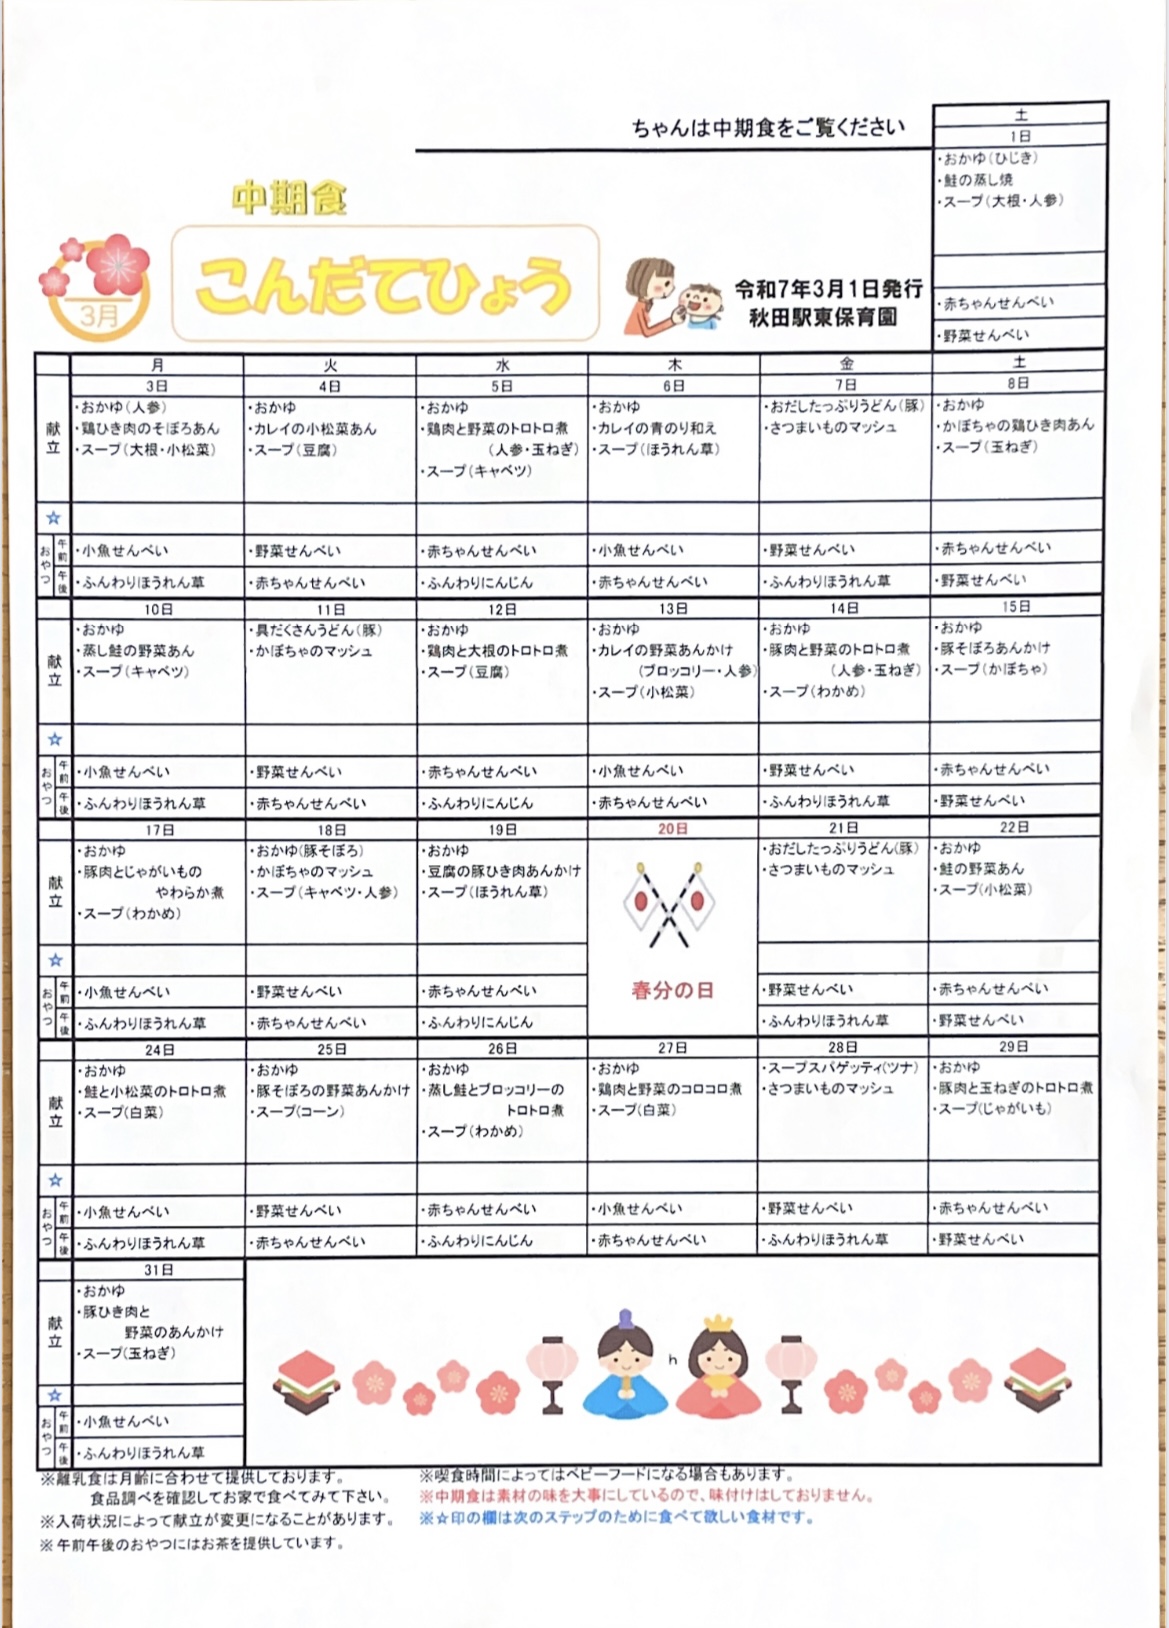 ちゃんは中期食をご覧ください
土
1日
・おかゆ(ひじき)
・鮭の蒸し焼
・スープ(大根・人参)
・赤ちゃんせんべい
・野菜せんべい
中期食
こんだてひょう
3月
令和7年3月1日発行
秋田駅東保育園
月 火 水 木 金 土
3日 4日 5日 6日 7日 8日
献立
・おかゆ(人参) ・おかゆ ・おかゆ ・おかゆ ・おだしたっぷりうどん(豚) ・おかゆ
・鶏ひき肉のそぼろあん ・カレイの小松菜あん ・鶏肉と野菜のトロトロ煮 ・カレイの青のり和え ・さつまいものマッシュ ・かぼちゃの鶏ひき肉あん
・スープ(大根・小松菜) ・スープ(豆腐) (人参・玉ねぎ) ・スープ(ほうれん草) ・スープ(玉ねぎ)
・スープ(キャベツ)
☆
おやつ
午前 ・小魚せんべい ・野菜せんべい ・赤ちゃんせんべい ・小魚せんべい ・野菜せんべい ・赤ちゃんせんべい
午後 ・ふんわりほうれん草 ・赤ちゃんせんべい ・ふんわりにんじん ・赤ちゃんせんべい ・ふんわりほうれん草 ・野菜せんべい
10日 11日 12日 13日 14日 15日
献立
・おかゆ ・具だくさんうどん(豚) ・おかゆ ・おかゆ ・おかゆ ・おかゆ
・蒸し鮭の野菜あん ・かぼちゃのマッシュ ・鶏肉と大根のトロトロ煮 ・カレイの野菜あんかけ ・豚肉と野菜のトロトロ煮 ・豚そぼろあんかけ
・スープ(キャベツ) ・スープ(豆腐) (ブロッコリー・人参) (人参・玉ねぎ) ・スープ(かぼちゃ)
・スープ(小松菜) ・スープ(わかめ)
☆
おやつ
午前 ・小魚せんべい ・野菜せんべい ・赤ちゃんせんべい ・小魚せんべい ・野菜せんべい ・赤ちゃんせんべい
午後 ・ふんわりほうれん草 ・赤ちゃんせんべい ・ふんわりにんじん ・赤ちゃんせんべい ・ふんわりほうれん草 ・野菜せんべい
17日 18日 19日 20日 21日 22日
献立
・おかゆ ・おかゆ(豚そぼろ) ・おかゆ ・おだしたっぷりうどん(豚) ・おかゆ
・豚肉とじゃがいもの ・かぼちゃのマッシュ ・豆腐の豚ひき肉あんかけ ・さつまいものマッシュ ・鮭の野菜あん
やわらか煮 ・スープ(キャベツ・人参) ・スープ(ほうれん草) ・スープ(小松菜)
・スープ(わかめ)
☆
春分の日
おやつ
午前 ・小魚せんべい ・野菜せんべい ・赤ちゃんせんべい ・野菜せんべい ・赤ちゃんせんべい
午後 ・ふんわりほうれん草 ・赤ちゃんせんべい ・ふんわりにんじん ・ふんわりほうれん草 ・野菜せんべい
24日 25日 26日 27日 28日 29日
献立
・おかゆ ・おかゆ ・おかゆ ・おかゆ ・スープスパゲッティ(ツナ) ・おかゆ
・鮭と小松菜のトロトロ煮 ・豚そぼろの野菜あんかけ ・蒸し鮭とブロッコリーの ・鶏肉と野菜のコロコロ煮 ・さつまいものマッシュ ・豚肉と玉ねぎのトロトロ煮
・スープ(白菜) ・スープ(コーン) トロトロ煮 ・スープ(白菜) ・スープ(じゃがいも)
・スープ(わかめ)
☆
おやつ
午前 ・小魚せんべい ・野菜せんべい ・赤ちゃんせんべい ・小魚せんべい ・野菜せんべい ・赤ちゃんせんべい
午後 ・ふんわりほうれん草 ・赤ちゃんせんべい ・ふんわりにんじん ・赤ちゃんせんべい ・ふんわりほうれん草 ・野菜せんべい
31日
献立
・おかゆ
・豚ひき肉と
野菜のあんかけ
・スープ(玉ねぎ)
☆
おやつ
午前 ・小魚せんべい
午後 ・ふんわりほうれん草
h
※離乳食は月齢に合わせて提供しております。
食品調べを確認してお家で食べてみて下さい。
※入荷状況によって献立が変更になることがあります。
※午前午後のおやつにはお茶を提供しています。
※喫食時間によってはベビーフードになる場合もあります。
※中期食は素材の味を大事にしているので、味付けはしておりません。
※☆印の欄は次のステップのために食べて欲しい食材です。